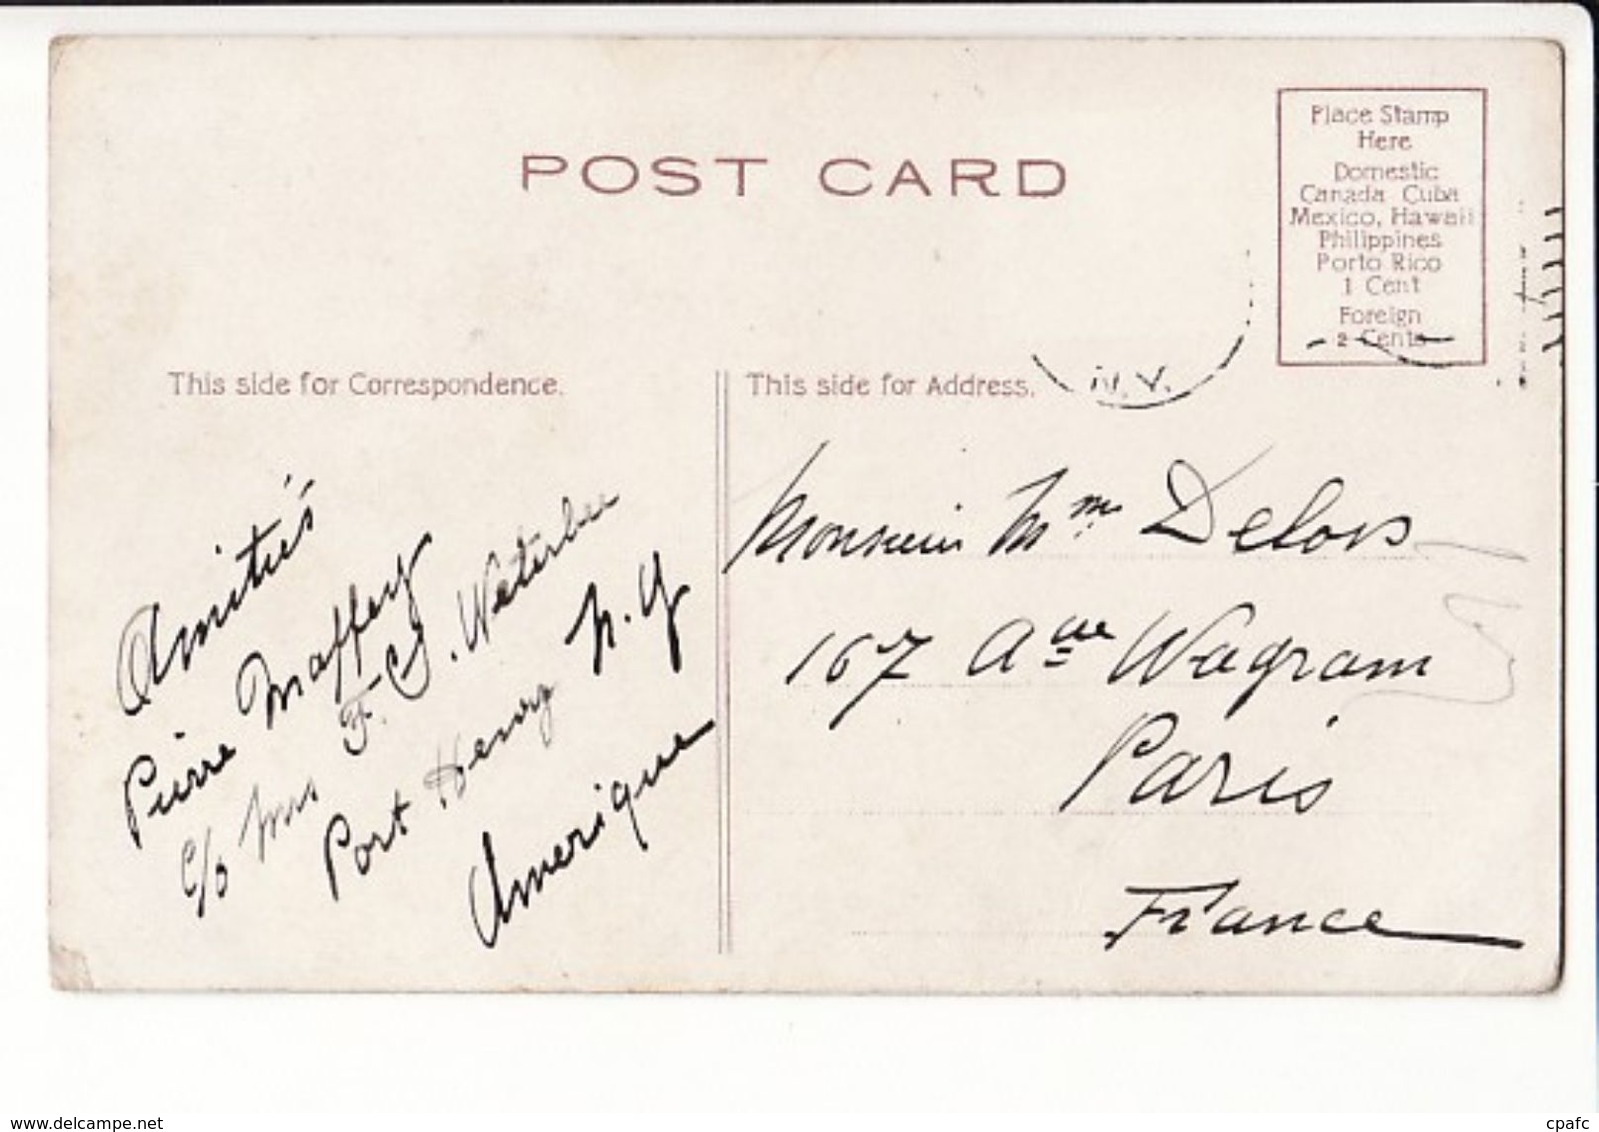 POST CARD
Place Stamp
Here
Domestic
Canada Cuba
Mexico, Hawaii
Philippines
Porto Rico
1 Cent
Foreign
2 Cents
This side for Correspondence.
This side for Address.
N.Y.
Amitiés
Pierre Maffey
c/o Mrs F. G. Weterbee
Port Henry N.Y
Amerique
Monsieur Mme Delors
167 Aue Wagram
Paris
France
www.delcampe.net
cpafc